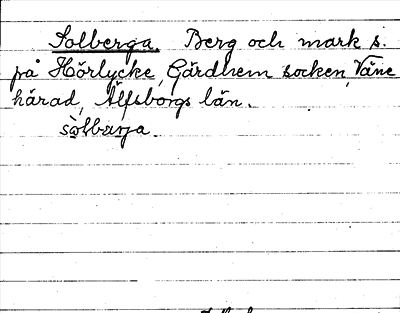 Solberga. Berg och mark s.
på Hörlycke, Gärdhem socken, Väne
härad, Älfsborgs län.
sòlbærja.